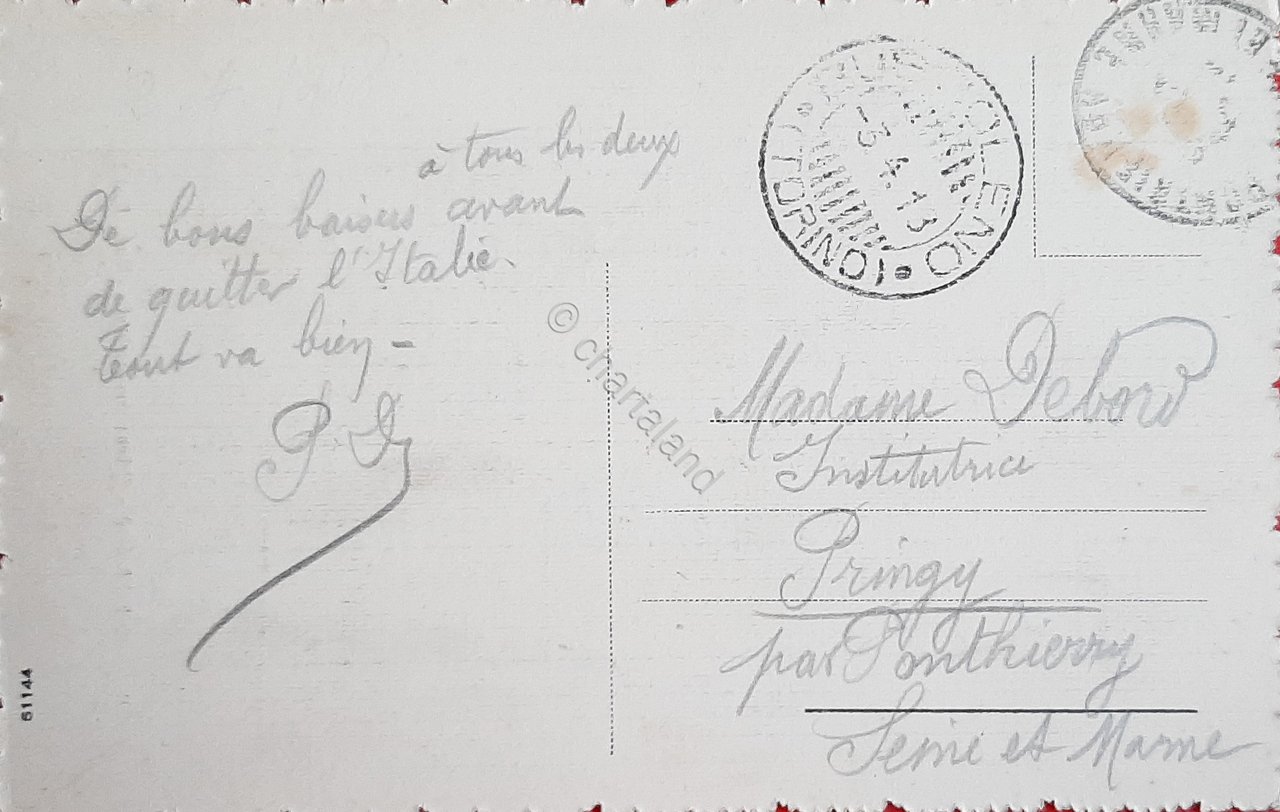 à tous les deux
De bons baisers avant
de quitter l'Italie.
Tout va bien –
P. D
Madame Debord
Institutrice
Pringy
par Ponthierry
Seine et Marne
-3.4.13
(TORINO)
© chartaland
51144